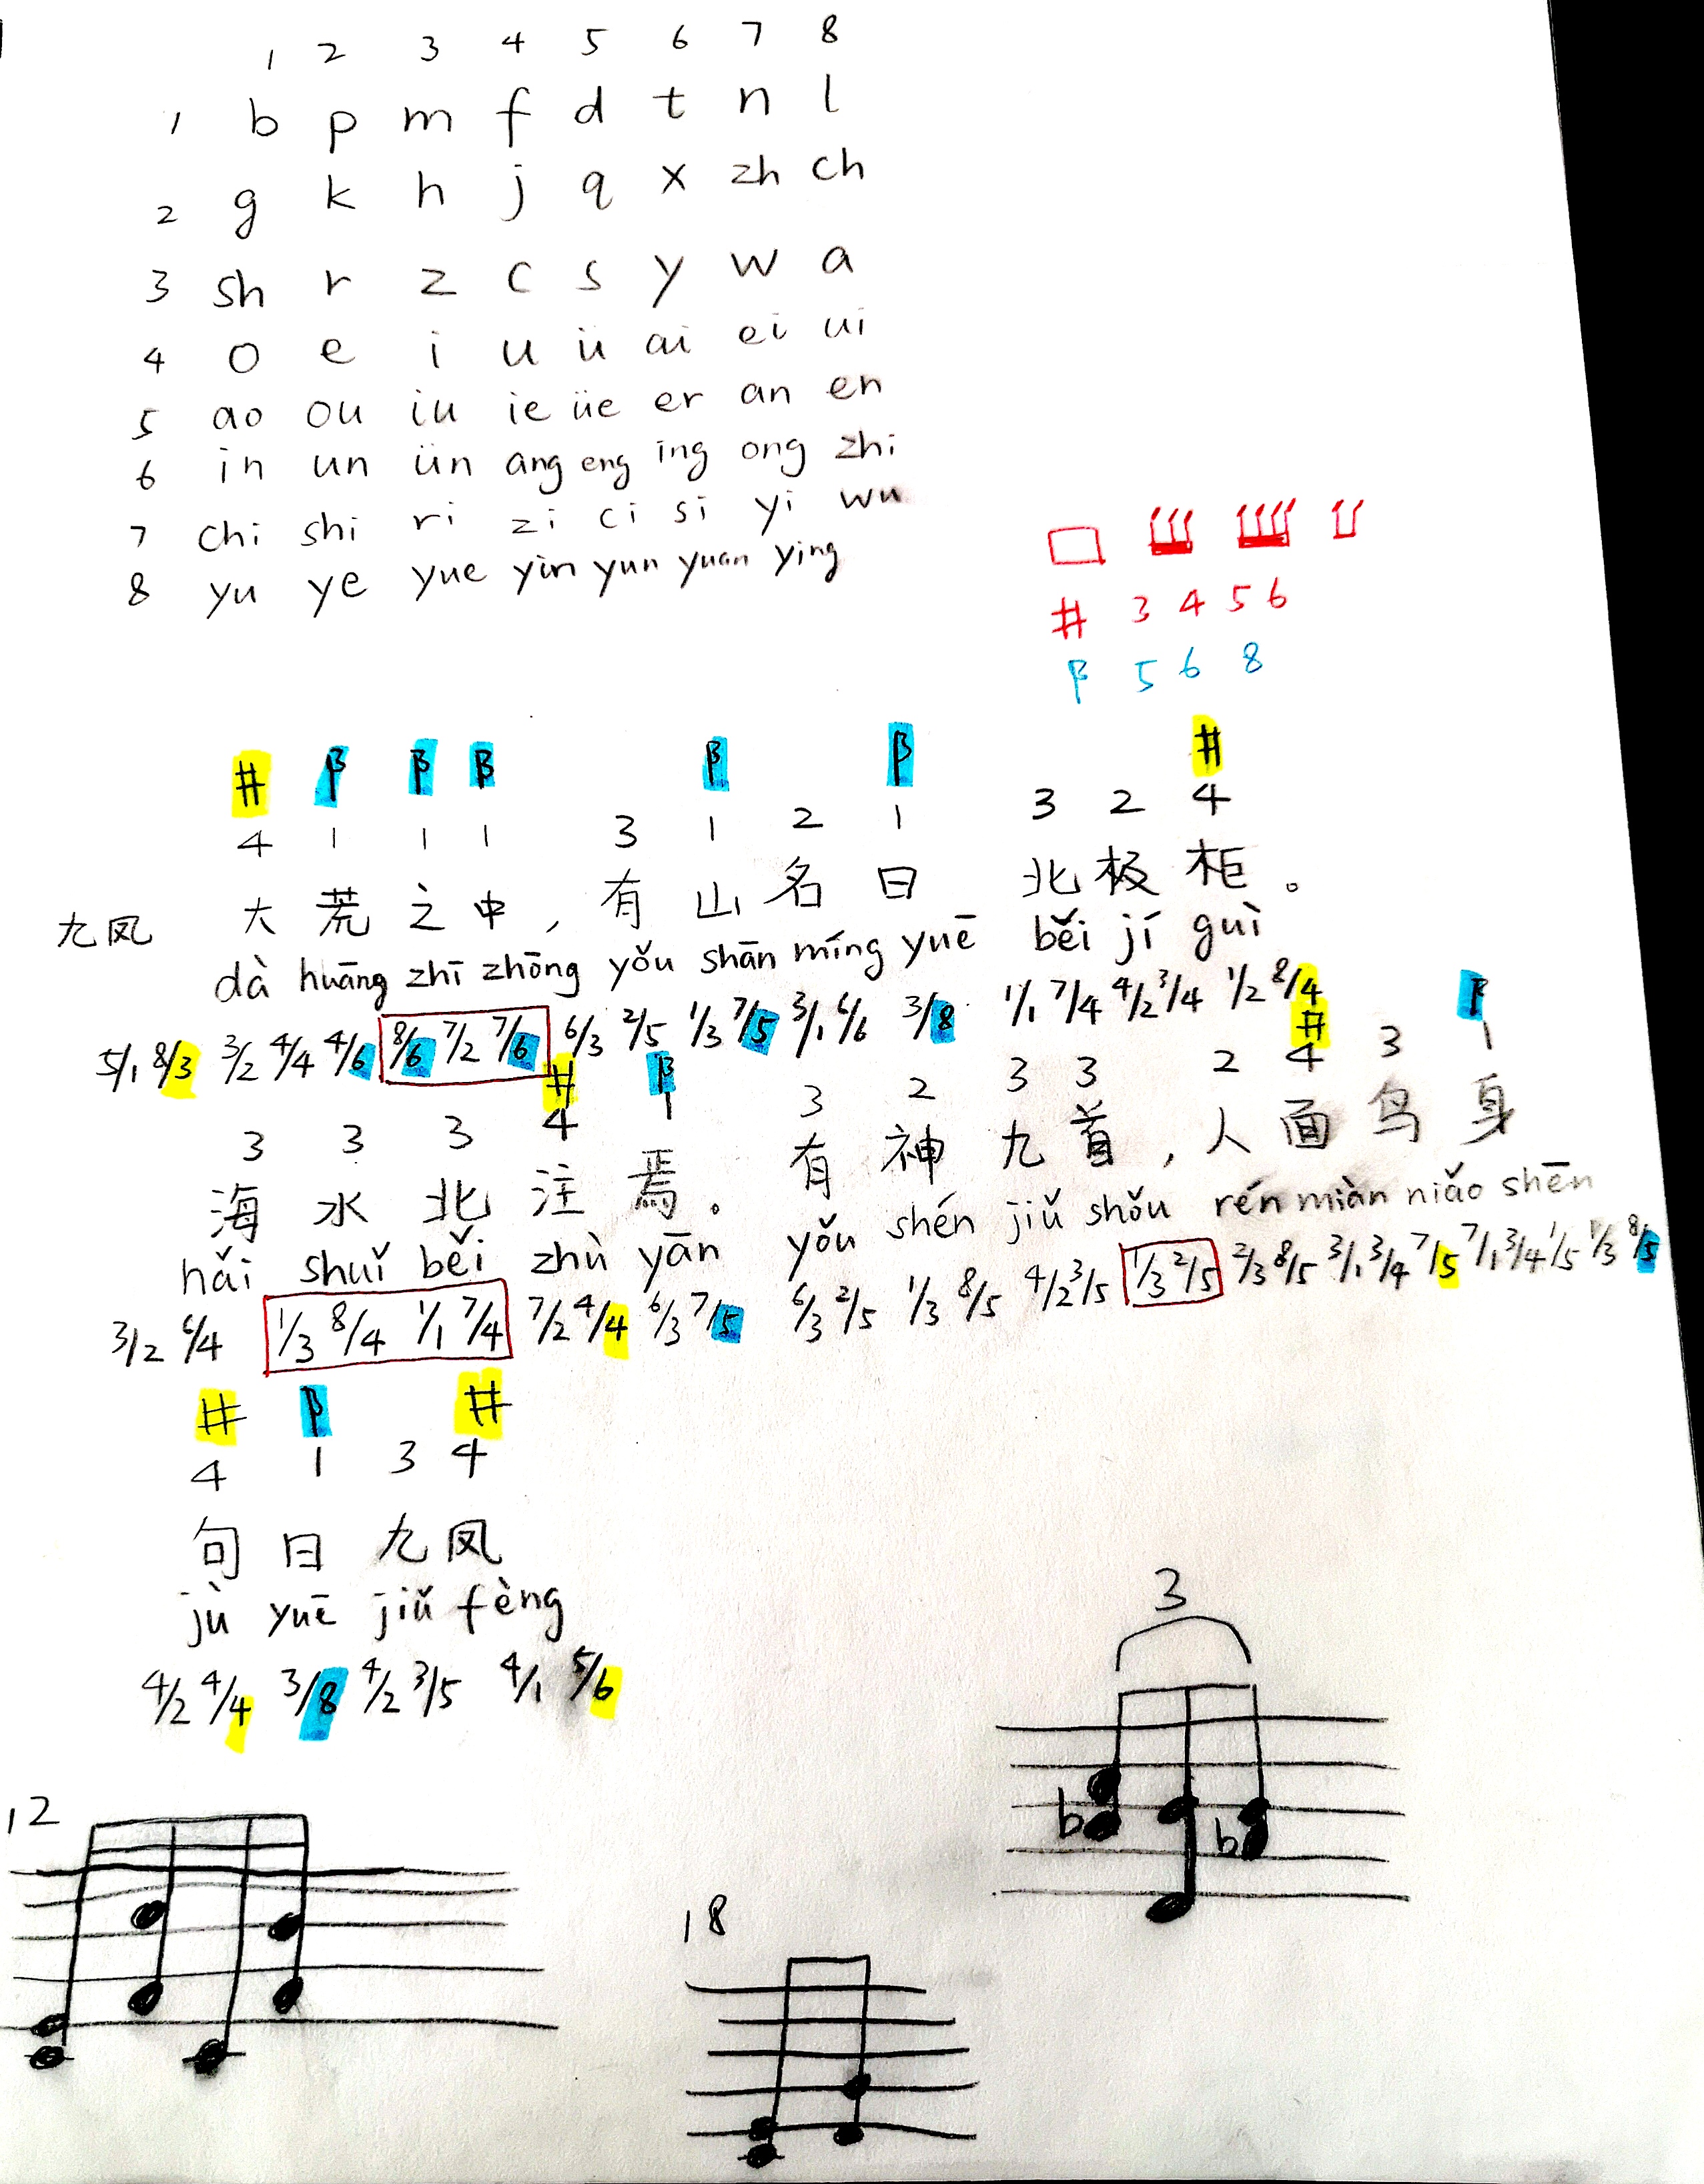 1 2 3 4 5 6 7 8
1 b p m f d t n l
2 g k h j q x zh ch
3 sh r z c s y w a
4 o e i u ü ai ei ui
5 ao ou iu ie üe er an en
6 in un ün ang eng ing ong zhi
7 chi shi ri zi ci si yi wu
8 yu ye yue yin yun yuan ying
# 3 4 5 6
β 5 6 8
# β β β β β #
4 1 1 1 3 1 2 1 3 2 4
九凤 大荒之中，有山名曰 北极柜。
dà huāng zhī zhōng yǒu shān míng yuē běi jí guì
5/1 8/3 3/2 4/4 4/6 8/6 7/2 7/6 6/3 2/5 1/3 7/5 3/1 6/6 3/8 1/1 7/4 4/2 3/4 1/2 8/4
# β # β
3 3 3 4 1 3 2 3 3 2 4 3 1
海水北注焉。有神九首，人面鸟身
hǎi shuǐ běi zhù yān yǒu shén jiǔ shǒu rén miàn niǎo shēn
3/2 6/4 1/3 8/4 1/1 7/4 7/2 4/4 6/3 7/5 6/3 2/5 1/3 8/5 4/2 3/5 1/3 2/5 2/3 8/5 3/1 3/4 7/5 7/1 3/4 1/5 1/3 8/5
# β #
4 1 3 4
句曰九凤
jù yuē jiǔ fèng
4/2 4/4 3/8 4/2 3/5 4/1 5/6
3
b b
12
18